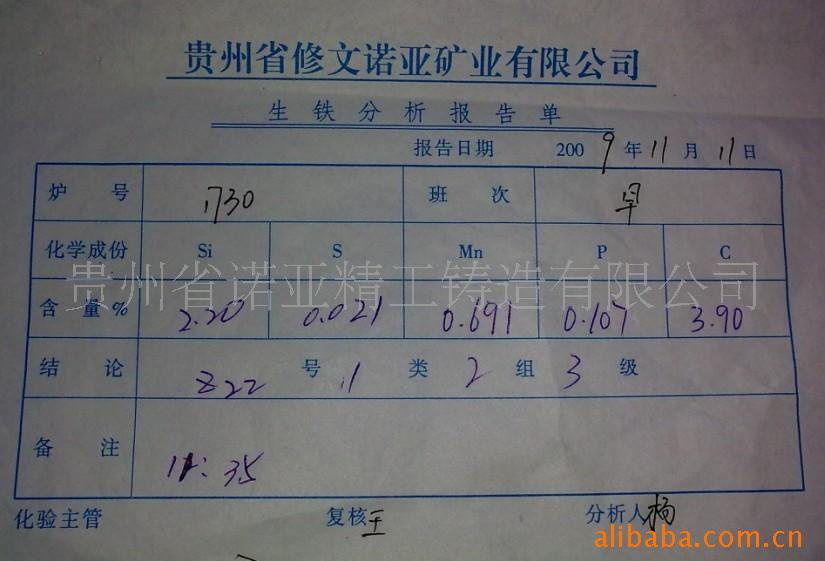 贵州省修文诺亚矿业有限公司
生铁分析报告单
报告日期 2009年11月11日
炉号 1730 班次 早
化学成份 Si S Mn P C
贵州省诺亚精工铸造有限公司
含量% 2.20 0.021 0.691 0.107 3.90
结论 Z22 号 1 类 2 组 3 级
备注 11:35
化验主管 复核 王 分析人 杨
alibaba.com.cn